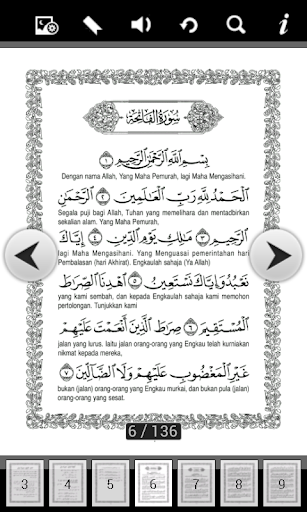 سُورَةُ الفَاتِحَةِ
بِسْمِ ٱللَّهِ ٱلرَّحْمَٰنِ ٱلرَّحِيمِ ١
Dengan nama Allah, Yang Maha Pemurah, lagi Maha Mengasihani.
ٱلْحَمْدُ لِلَّهِ رَبِّ ٱلْعَٰلَمِينَ ٢ ٱلرَّحْمَٰنِ
Segala puji bagi Allah, Tuhan yang memelihara dan mentadbirkan
sekalian alam. Yang Maha Pemurah,
ٱلرَّحِيمِ ٣ مَٰلِكِ يَوْمِ ٱلدِّينِ ٤ إِيَّاكَ
lagi Maha Mengasihani. Yang Menguasai pemerintahan hari
Pembalasan (hari Akhirat). Engkaulah sahaja (Ya Allah)
نَعْبُدُ وَإِيَّاكَ نَسْتَعِينُ ٥ ٱهْدِنَا ٱلصِّرَٰطَ
yang kami sembah, dan kepada Engkaulah sahaja kami memohon
pertolongan. Tunjukkan kami
ٱلْمُسْتَقِيمَ ٦ صِرَٰطَ ٱلَّذِينَ أَنْعَمْتَ عَلَيْهِمْ
jalan yang lurus. Iaitu jalan orang-orang yang Engkau telah kurniakan
nikmat kepada mereka,
غَيْرِ ٱلْمَغْضُوبِ عَلَيْهِمْ وَلَا ٱلضَّآلِّينَ ٧
bukan (jalan) orang-orang yang Engkau murkai, dan bukan pula (jalan)
orang-orang yang sesat.
6 / 136
3 4 5 6 7 8 9